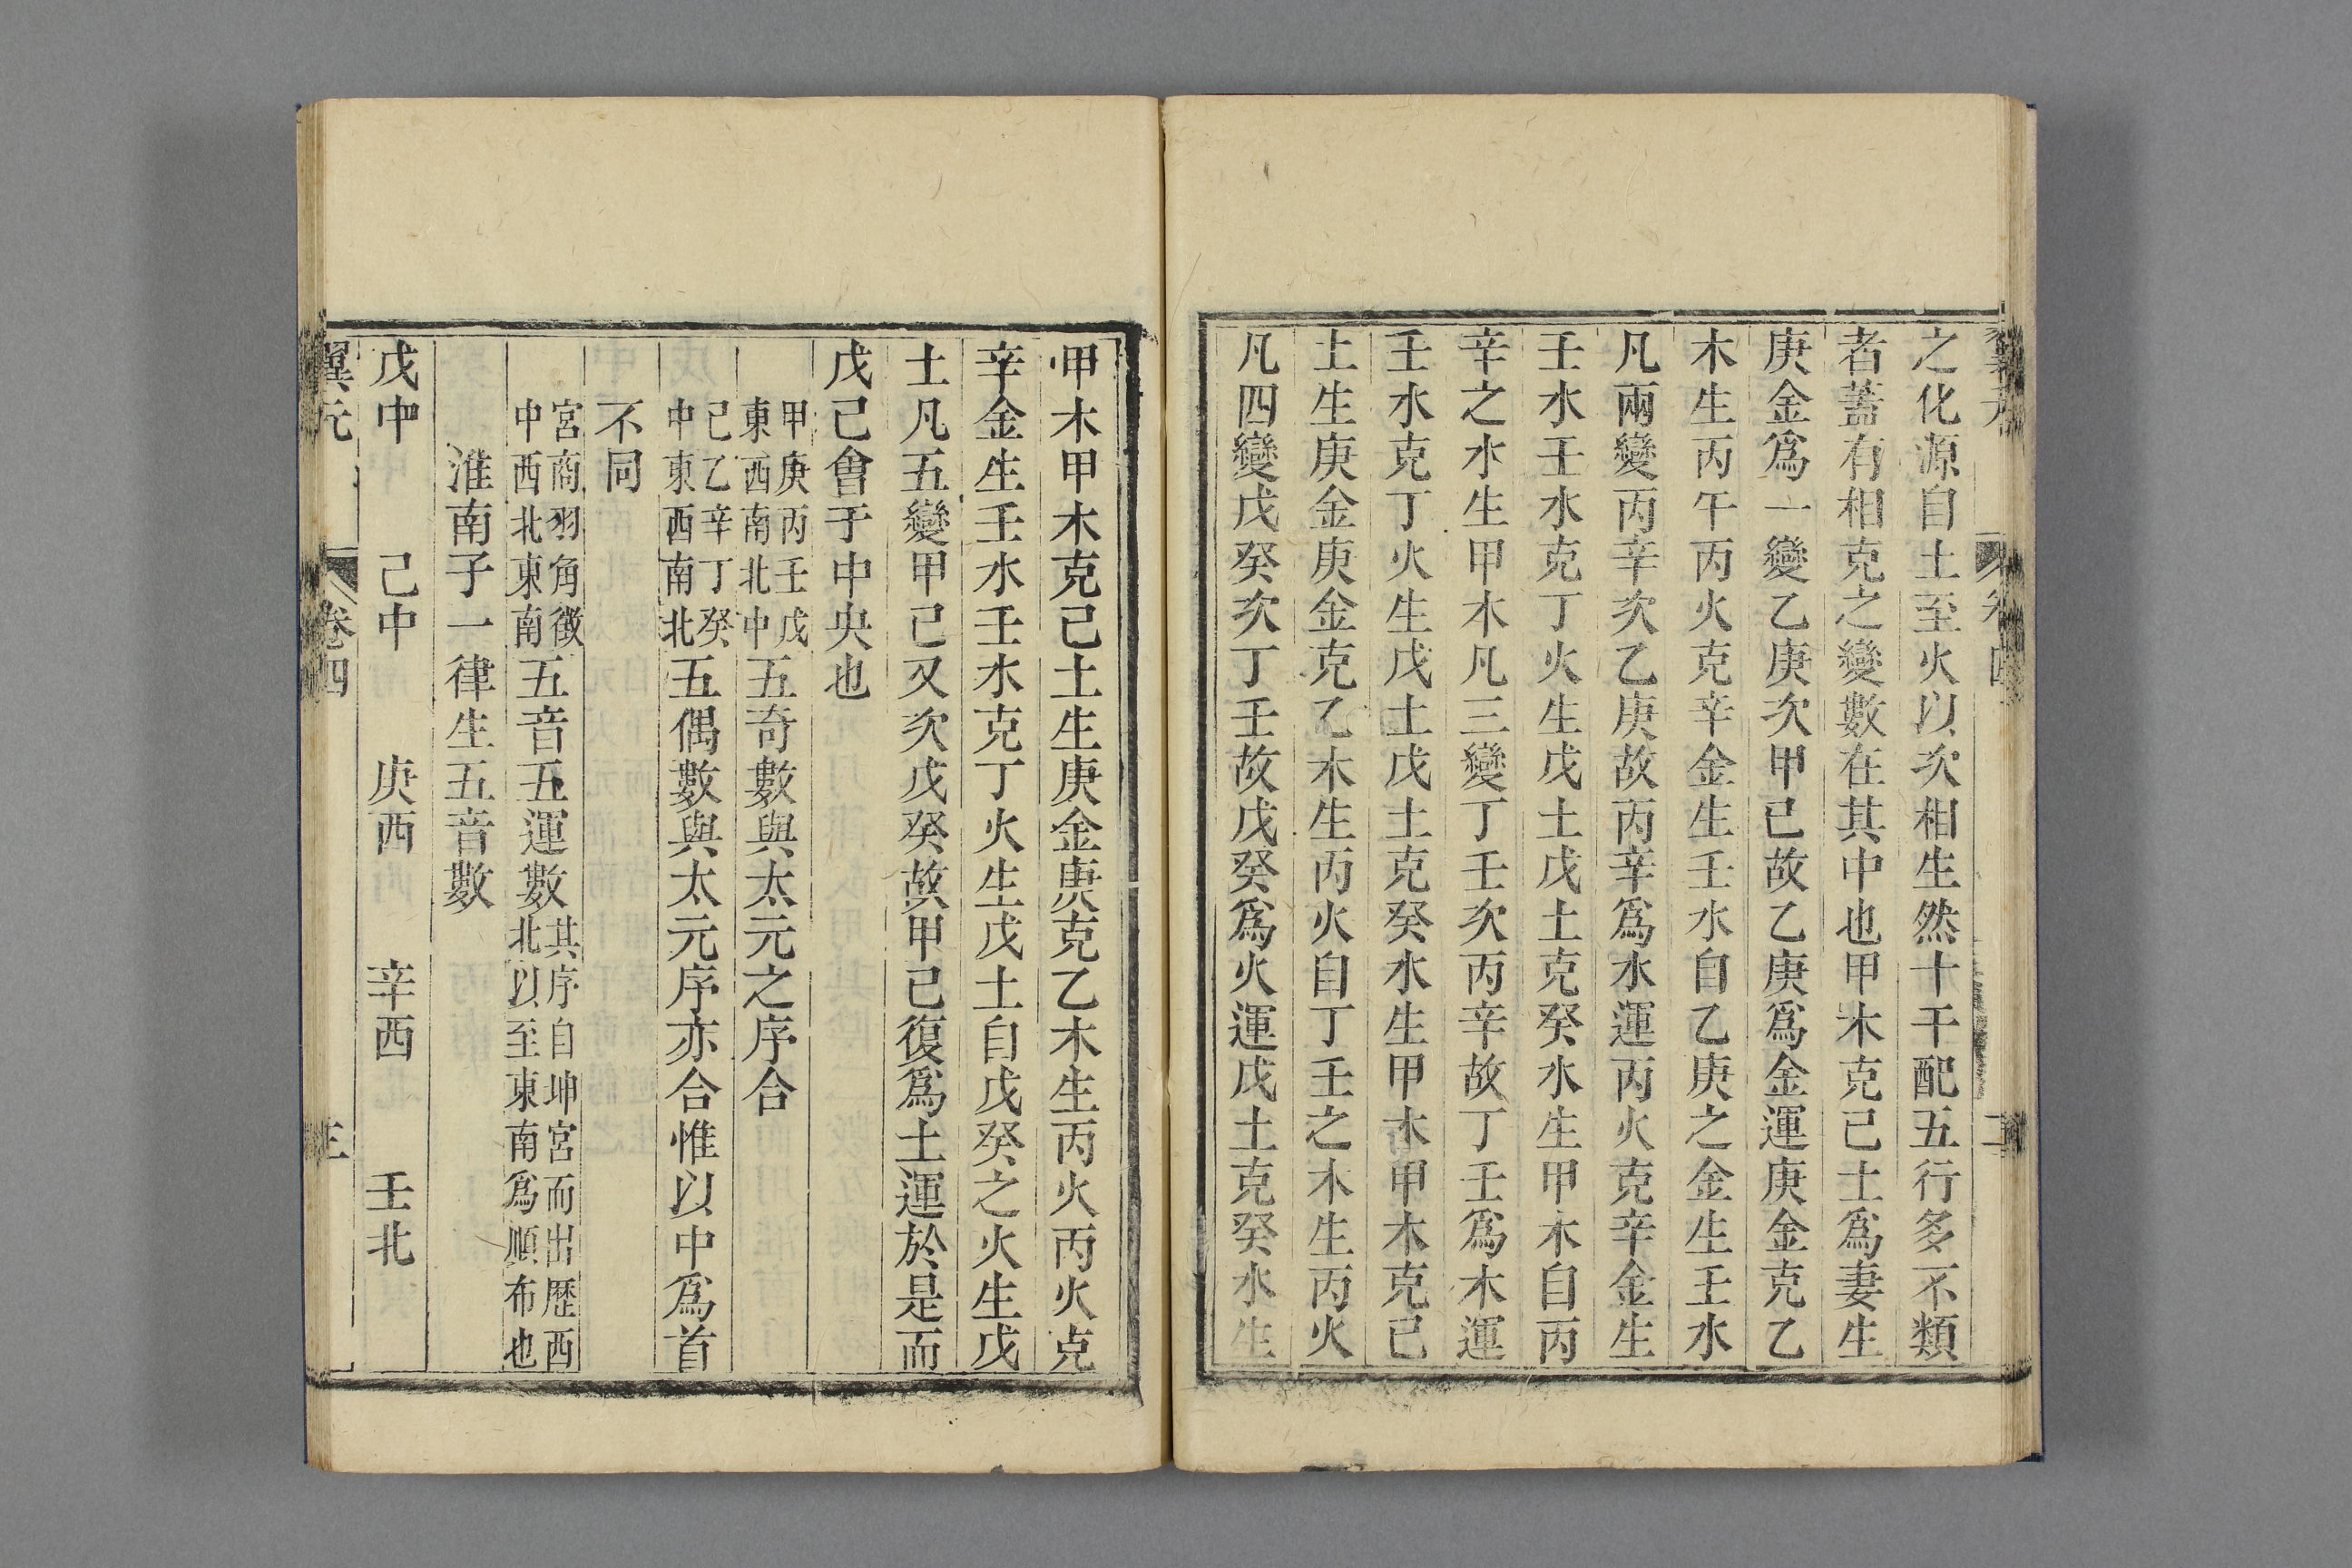 之化源自土至火以次相生然十干配五行多不類
者蓋有相克之變數在其中也甲木克己土爲妻生
庚金爲一變乙庚次甲己故乙庚爲金運庚金克乙
木生丙午丙火克辛金生壬水自乙庚之金生壬水
凡兩變丙辛次乙庚故丙辛爲水運丙火克辛金生
壬水壬水克丁火生戊土戊土克癸水生甲木自丙
辛之水生甲木凡三變丁壬次丙辛故丁壬爲木運
壬水克丁火生戊土戊土克癸水生甲木甲木克己
土生庚金庚金克乙木生丙火自丁壬之木生丙火
凡四變戊癸次丁壬故戊癸爲火運戊土克癸水生
甲木甲木克己土生庚金庚克乙木生丙火丙火克
辛金生壬水壬水克丁火生戊土自戊癸之火生戊
土凡五變甲己又次戊癸故甲己復爲土運於是而
戊己會于中央也
甲庚丙壬戊
東西南北中
五奇數與太元之序合
己乙辛丁癸
中東西南北
五偶數與太元序亦合惟以中爲首
不同
宮商羽角徵
中西北東南
五音五運數
其序自坤宮而出歷西
北以至東南爲順布也
淮南子一律生五音數
戊中 己中 庚西 辛西 壬北
翼元 卷四 三